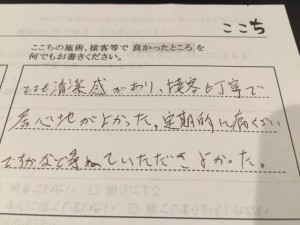 ここち
ここちの施術、接客等で 良かったところ を
何でもお書きください。
とても清潔感があり、接客も丁寧で
居心地がよかった。定期的に痛くない
ですかなど尋ねていただきよかった。